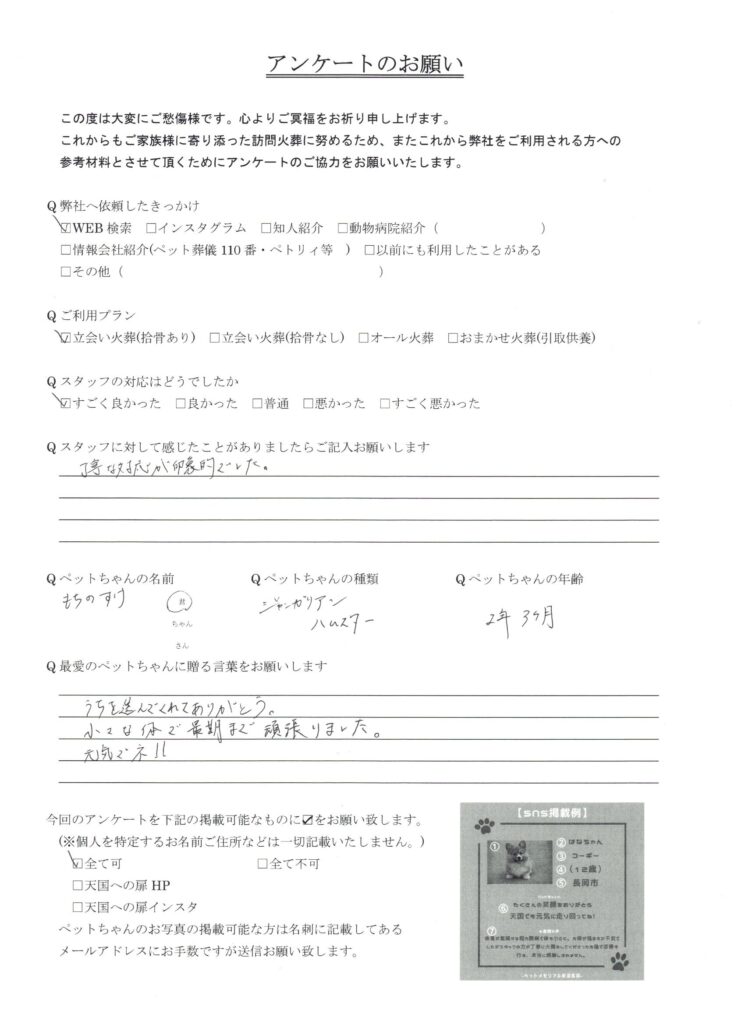 アンケートのお願い
この度は大変にご愁傷様です。心よりご冥福をお祈り申し上げます。
これからもご家族様に寄り添った訪問火葬に努めるため、またこれから弊社をご利用される方への
参考材料とさせて頂くためにアンケートのご協力をお願いいたします。
Q 弊社へ依頼したきっかけ
☑WEB 検索 □インスタグラム □知人紹介 □動物病院紹介（ ）
□情報会社紹介(ペット葬儀 110 番・ペトリィ等 ) □以前にも利用したことがある
□その他（ ）
Q ご利用プラン
☑立会い火葬(拾骨あり) □立会い火葬(拾骨なし) □オール火葬 □おまかせ火葬(引取供養)
Q スタッフの対応はどうでしたか
☑すごく良かった □良かった □普通 □悪かった □すごく悪かった
Q スタッフに対して感じたことがありましたらご記入お願いします
丁寧な対応が印象的でした。
Q ペットちゃんの名前 Q ペットちゃんの種類 Q ペットちゃんの年齢
もちのすけ 君 ジャンガリアン
ちゃん ハムスター 2年 3ヶ月
さん
Q 最愛のペットちゃんに贈る言葉をお願いします
うちを選んでくれてありがとう。
小さな体で最期まで頑張りました。
元気でネ!!
今回のアンケートを下記の掲載可能なものに☑をお願い致します。
(※個人を特定するお名前ご住所などは一切記載いたしません。)
☑全て可 □全て不可
□天国への扉 HP
□天国への扉インスタ
ペットちゃんのお写真の掲載可能な方は名刺に記載してある
メールアドレスにお手数ですが送信お願い致します。
【sns掲載例】
① ② はなちゃん
③ コーギー
④ (12歳)
⑤ 長岡市
⑥ たくさんの笑顔をありがとう
天国でも元気に走り回ってね!
⑦